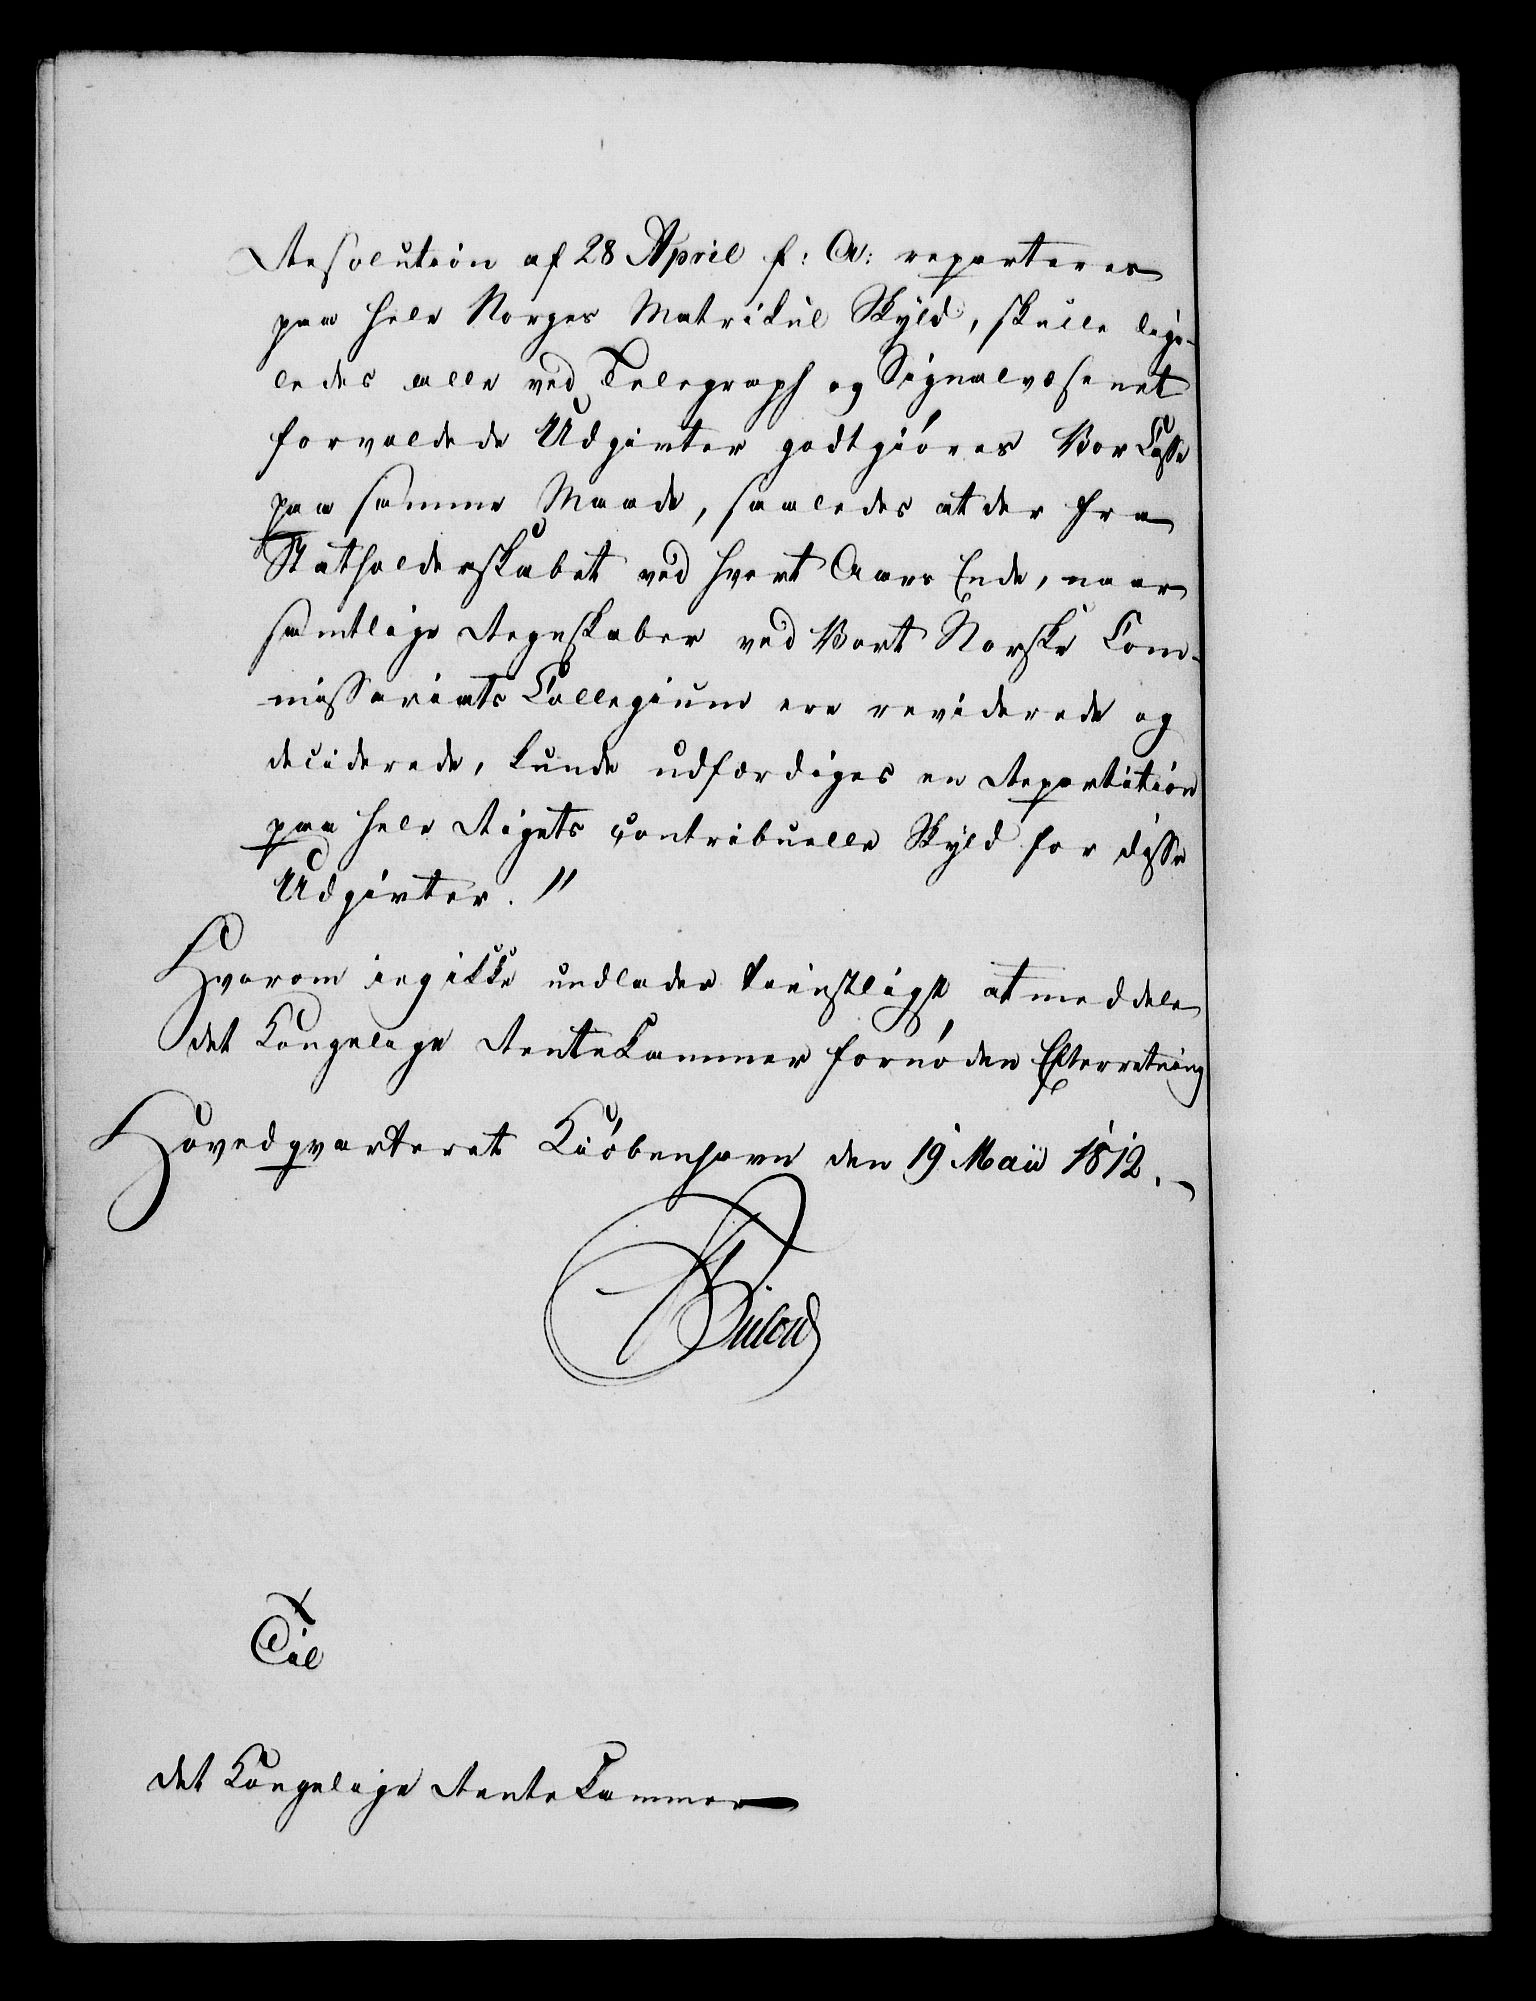 Resolution af 28 April f: A: reparteres
paa hele Norges Matrikul Skyld, skulle lige-
ledes alle ved Telegraph og Signalvæsenet
forvoldede Udgivter godtgióres Vor Casse
paa samme Maade, saaledes at der fra
Statholderskabet ved hvert Aars Ende, naar
samtlige Regnskaber ved Vort Norske Com-
missariats Collegium ere reviderede og
deciderede, kunde udfærdiges en Repartition
paa hele Rigets contribuelle Skyld for disse
Udgivter."
Hvorom ieg ikke undlader tienstligst at meddele
det Kongelige Rentekammer fornóden Efterretning
Hovedqvarteret Kióbenhavn den 19 Maii 1812.
FBülow
Til
det Kongelige Rentekammer